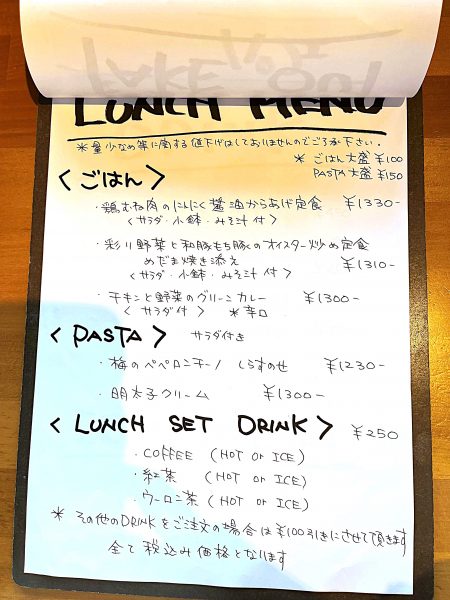 LUNCH MENU
*量少なめ等に関する値下げはしておりませんのでご了承下さい。
* ごはん大盛 ¥100
PASTA大盛 ¥150
<ごはん>
・鶏むね肉のにんにく醤油からあげ定食 ¥1330-
<サラダ・小鉢・みそ汁付>
・彩り野菜と和豚もち豚のオイスター炒め定食
めだま焼き添え ¥1310-
<サラダ・小鉢・みそ汁付>
・チキンと野菜のグリーンカレー ¥1300-
<サラダ付> *辛口
<PASTA> サラダ付き
・梅のペペロンチーノ しらすのせ ¥1230-
・明太子クリーム ¥1300-
<LUNCH SET DRINK> ¥250
・COFFEE (HOT or ICE)
・紅茶 (HOT or ICE)
・ウーロン茶 (HOT or ICE)
* その他のDRINKをご注文の場合は¥100引きにさせて頂きます
全て税込み価格となります